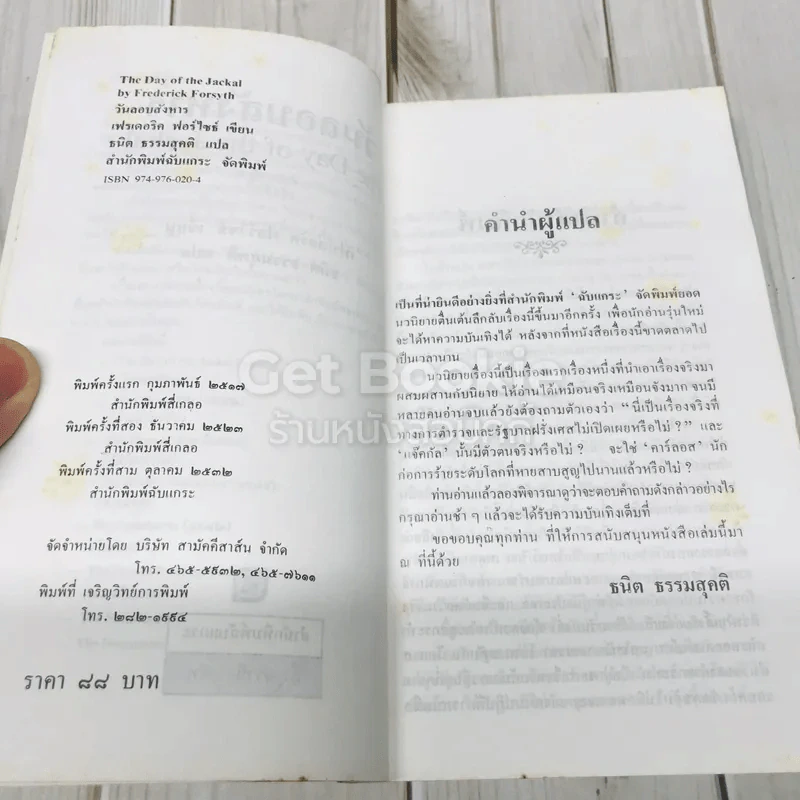 The Day of the Jackal
by Frederick Forsyth
วันลอบสังหาร
เฟรเดอริค ฟอร์ไซธ์ เขียน
ธนิต ธรรมสุคติ แปล
สำนักพิมพ์ฉับแกระ จัดพิมพ์
ISBN 974-976-020-4
พิมพ์ครั้งแรก กุมภาพันธ์ ๒๕๑๗
สำนักพิมพ์สี่เกลอ
พิมพ์ครั้งที่สอง ธันวาคม ๒๕๒๓
สำนักพิมพ์สี่เกลอ
พิมพ์ครั้งที่สาม ตุลาคม ๒๕๓๒
สำนักพิมพ์ฉับแกระ
จัดจำหน่ายโดย บริษัท สามัคคีสาส์น จำกัด
โทร. ๔๖๕-๕๙๓๒, ๔๖๕-๗๖๑๑
พิมพ์ที่ เจริญวิทย์การพิมพ์
โทร. ๒๘๒-๑๙๙๔
ราคา ๘๘ บาท
คำนำผู้แปล
เป็นที่น่ายินดีอย่างยิ่งที่สำนักพิมพ์ ‘ฉับแกระ’ จัดพิมพ์ยอด
นวนิยายตื่นเต้นลึกลับเรื่องนี้ขึ้นมาอีกครั้ง เพื่อนักอ่านรุ่นใหม่
จะได้หาความบันเทิงได้ หลังจากที่หนังสือเรื่องนี้ขาดตลาดไป
เป็นเวลานาน
นวนิยายเรื่องนี้เป็นเรื่องแรกเรื่องหนึ่งที่นำเอาเรื่องจริงมา
ผสมผสานกับนิยาย ให้อ่านได้เหมือนจริงเหมือนจังมาก จนมี
หลายคนอ่านจบแล้วยังต้องถามตัวเองว่า “นี่เป็นเรื่องจริงที่
ทางการตำรวจและรัฐบาลฝรั่งเศสไม่เปิดเผยหรือไม่ ?” และ
‘แจ๊คกัล’ นั้นมีตัวตนจริงหรือไม่ ? จะใช่ ‘คาร์ลอส’ นัก
ก่อการร้ายระดับโลกที่หายสาบสูญไปนานแล้วหรือไม่ ?
ท่านอ่านแล้วลองพิจารณาดูว่าจะตอบคำถามดังกล่าวอย่างไร
กรุณาอ่านช้า ๆ แล้วจะได้รับความบันเทิงเต็มที่
ขอขอบคุณทุกท่าน ที่ให้การสนับสนุนหนังสือเล่มนี้มา
ณ ที่นี้ด้วย
ธนิต ธรรมสุคติ
Get Bookie